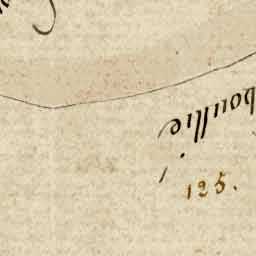 boullie
125.